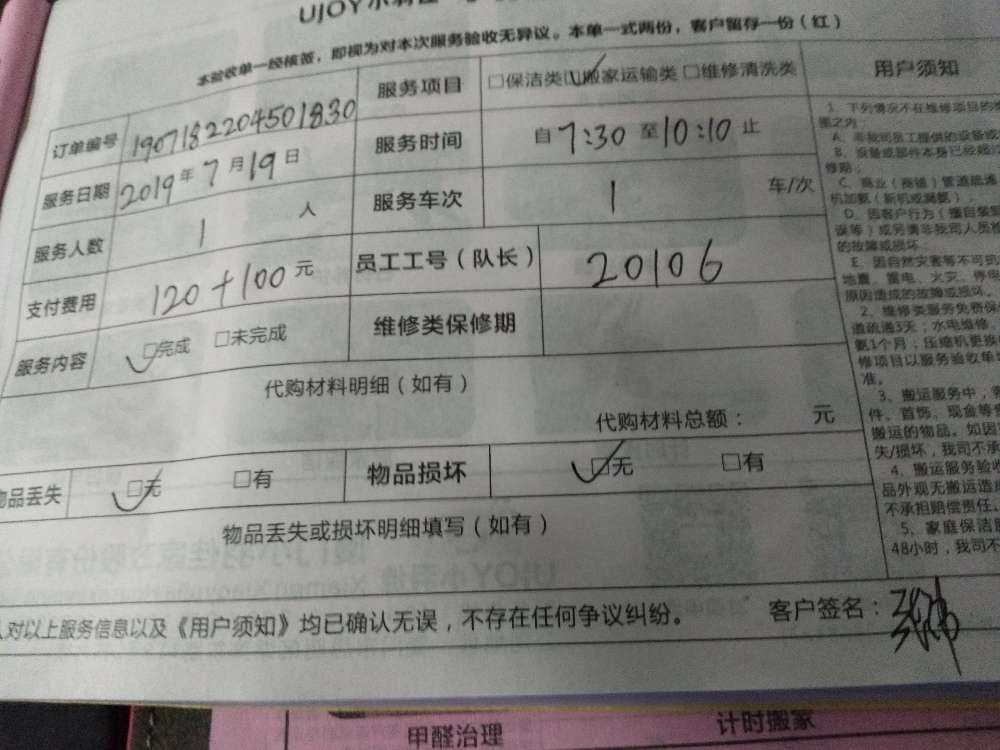 UJOY小羽佳
本验收单一经核签,即视为对本次服务验收无异议。本单一式两份,客户留存一份(红)
订单编号 1907182204501830 服务项目 □保洁类 □搬家运输类 □维修清洗类 用户须知
服务日期 2019年7月19日 服务时间 自7:30至10:10止
服务人数 1 人 服务车次 1 车/次
支付费用 120+100元 员工工号(队长) 20106
服务内容 □完成 □未完成 维修类保修期
代购材料明细(如有)
代购材料总额: 元
物品丢失 □无 □有 物品损坏 □无 □有
物品丢失或损坏明细填写(如有)
对以上服务信息以及《用户须知》均已确认无误,不存在任何争议纠纷。 客户签名:
1、下列情况不在维修项目的
围之内
A、非我司员工提供的设备或
B、设备或部件本身已经超过
修期;
C、商业(商铺)管道疏通
机加氨(新机或漏氨);
D、因客户行为(擅自
误等)或另请非我司人员
的故障或损坏
E、因自然灾害等不可抗
地震、雷电、火灾、停电
原因造成的故障或损坏。
2、维修类服务免费保
道疏通3天;水电维修、
氨1个月;压缩机更换
修项目以服务验收单
准。
3、搬运服务中,
件、首饰、现金等
搬运的物品。如因
失/损坏,我司不承
4、搬运服务验收
品外观无搬运造成
不承担赔偿责任。
5、家庭保洁
48小时,我司不
甲醛治理 计时搬家